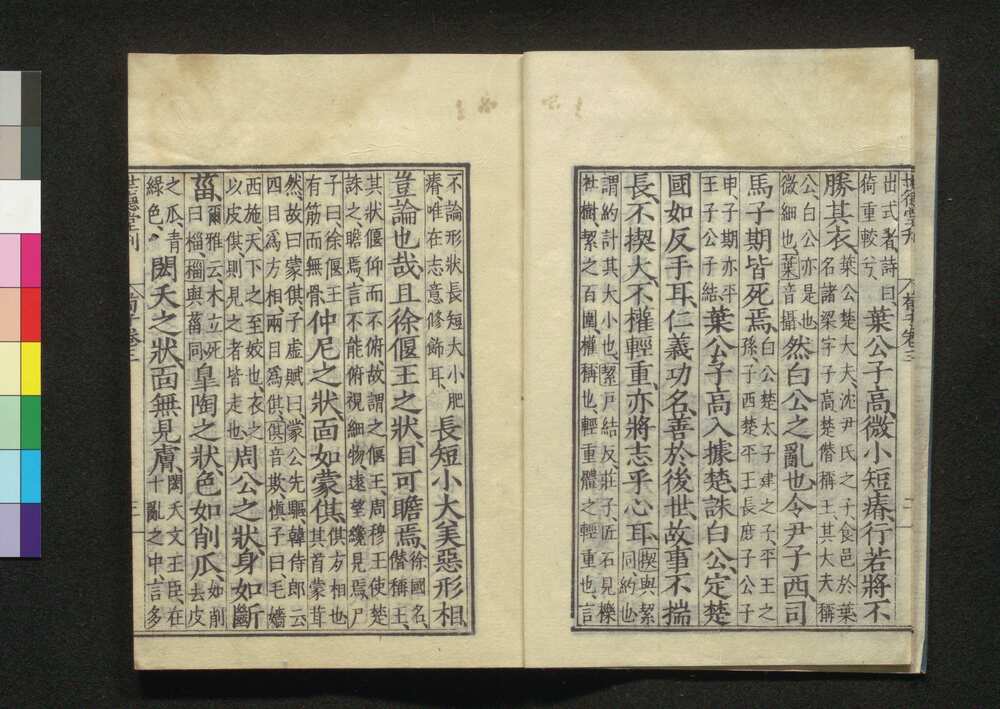 世德堂刊 荀子卷三 二
出式者詩曰
猗重較兮
葉公子高微小短瘠行若將不
勝其衣
葉公楚大夫沈尹氏之子食邑於葉
名諸梁字子高楚僭稱王其大夫稱
公白公亦是也
微細也葉音攝
然白公之亂也令尹子西司
馬子期皆死焉
白公楚太子建之子平王之
孫子西楚平王長庶子公子
申子期亦平
王子公子結
葉公子高入據楚誅白公定楚
國如反手耳仁義功名善於後世故事不揣
長不揳大不權輕重亦將志乎心耳
揳與絜
同約也
謂約計其大小也絜戶結反莊子匠石見櫟
社樹絜之百圍權稱也輕重體之輕重也言
不論形狀長短大小肥
瘠唯在志意修飾耳
長短小大美惡形相
豈論也哉且徐偃王之狀目可瞻焉
徐國名
僭稱王
其狀偃仰而不俯故謂之偃王周穆王使楚
誅之瞻焉言不能俯視細物遠望纔見焉尸
子曰徐偃王
有筋而無骨
仲尼之狀面如蒙倛
倛方相也
其首蒙茸
然故曰蒙倛子虛賦曰蒙公先驅韓侍郎云
四目爲方相兩目爲倛倛音欺慎子曰毛嬙
西施天下之至姣也衣之
以皮倛則見之者皆走也
周公之狀身如斷
菑
爾雅云木立死
曰椔椔與菑同
皐陶之狀色如削瓜
如削
去皮
之瓜青
綠色
閎夭之狀面無見膚
閎夭文王臣在
十亂之中言多
世德堂刊 荀子卷三 三